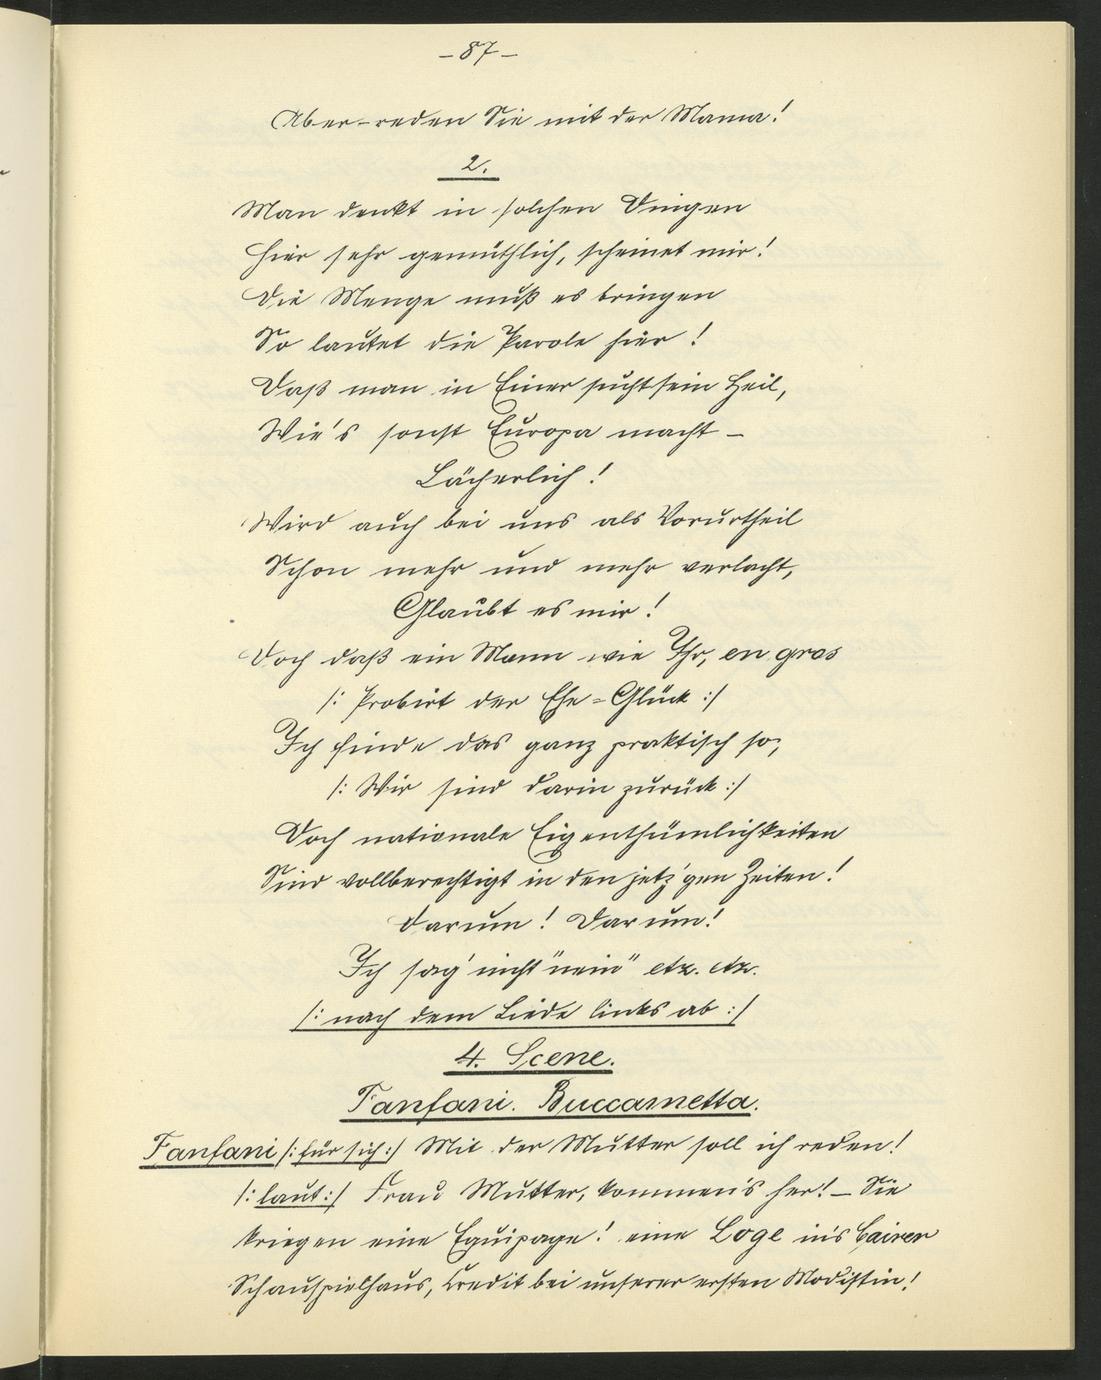 -87-
Aber-reden Sie mit der Mama!
2.
Man denkt in solchen Dingen
Hier sehr gemüthlich, scheinet mir!
Die Menge muß es bringen
So lautet die Parole hier!
Daß man in Einer sucht sein Heil,
Wie's sonst Europa macht -
Lächerlich!
Wird auch bei uns als Vorurtheil
Schon mehr und mehr verlacht,
Glaubt es mir!
Doch daß ein Mann wie Ihr, en gros
/: Probirt der Ehe=Glück :/
Ich finde das ganz praktisch so;
/: Wir sind darin zurück :/
Doch nationale Eigenthümlichkeiten
Sind vollberechtigt in den jetz'gen Zeiten!
Darum! Darum!
Ich sag' nicht "nein" etz. etz.
/: nach dem Liede links ab :/
4. Scene.
Fanfani. Buccametta.
Fanfani /: für sich :/ Mit der Mutter soll ich reden!
/: laut :/ Frau Mutter, kommen's her! - Sie
kriegen eine Equipage! eine Loge in's Cairer
Schauspielhaus, Credit bei unserer ersten Modistin!